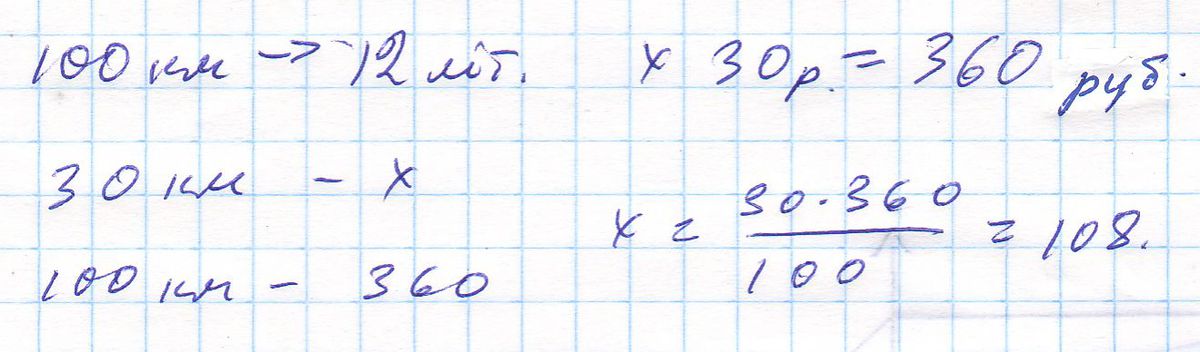 100 км → 12 лт. x 30 р. = 360 руб.
30 км - x
100 км - 360
x = 30·360 / 100 = 108.